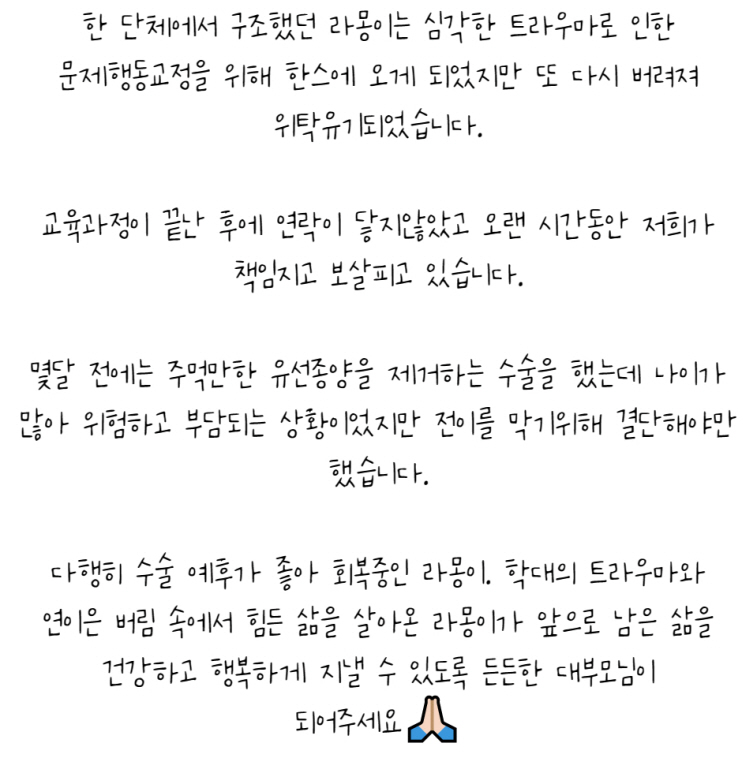 한 단체에서 구조했던 라몽이는 심각한 트라우마로 인한
문제행동교정을 위해 한스에 오게 되었지만 또 다시 버려져
위탁유기되었습니다.
교육과정이 끝난 후에 연락이 닿지않았고 오랜 시간동안 저희가
책임지고 보살피고 있습니다.
몇달 전에는 주먹만한 유선종양을 제거하는 수술을 했는데 나이가
많아 위험하고 부담되는 상황이었지만 전이를 막기위해 결단해야만
했습니다.
다행히 수술 예후가 좋아 회복중인 라몽이. 학대의 트라우마와
연이은 버림 속에서 힘든 삶을 살아온 라몽이가 앞으로 남은 삶을
건강하고 행복하게 지낼 수 있도록 든든한 대부모님이
되어주세요🙏🏻